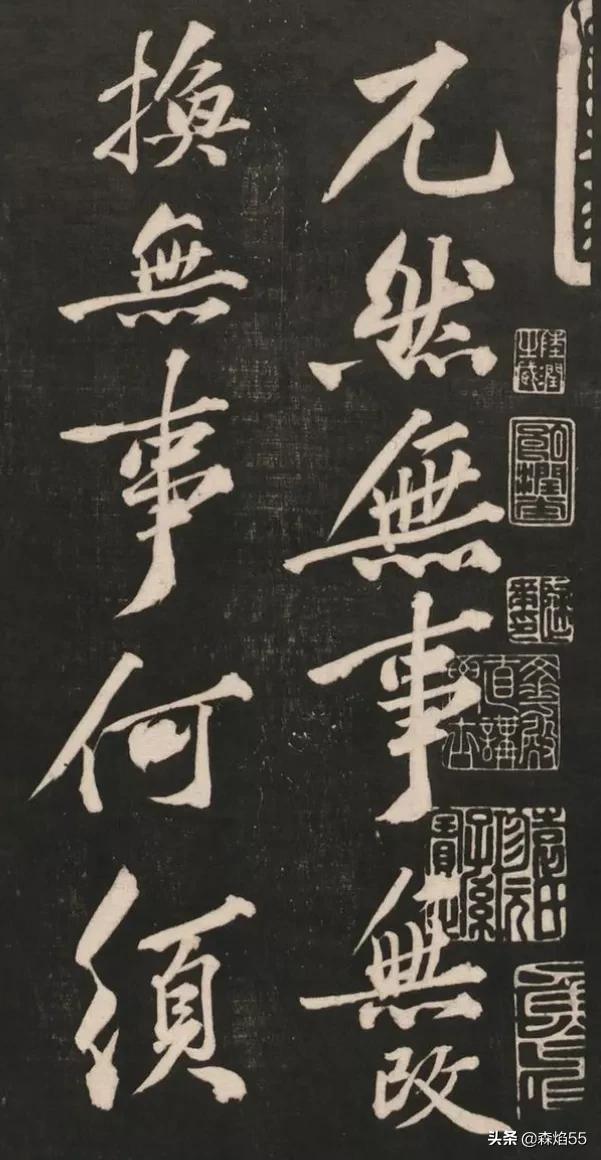 兀然無事無改
換無事何須
头条 @森焰55